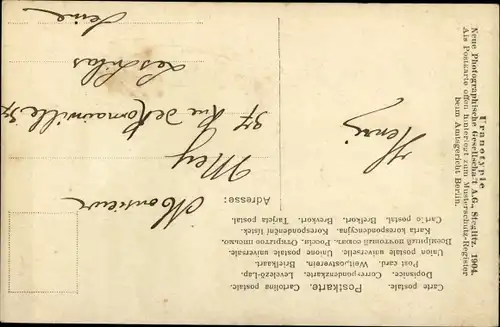 Carte postale. Postkarte. Cartolina postale
Dopisnice. Correspondenzkarte. Levelező-Lap.
Post card. Weltpostverein. Briefkaart.
Union postale universelle. Unione postale universale.
Karta korespondencyjna. Korespondenční lístek.
Cart'o postal. Brefkort. Brevkort. Tarjeta postal.
Adresse:
Monsieur
Mey
37 Rue de Romainville 37
Les Lilas
Seine
Henri
Uranotypie
Neue Photographische Gesellschaft A.G., Steglitz. 1904.
Als Postkarte offen hinterlegt zum Musterschutz-Register
beim Amtsgericht Berlin.